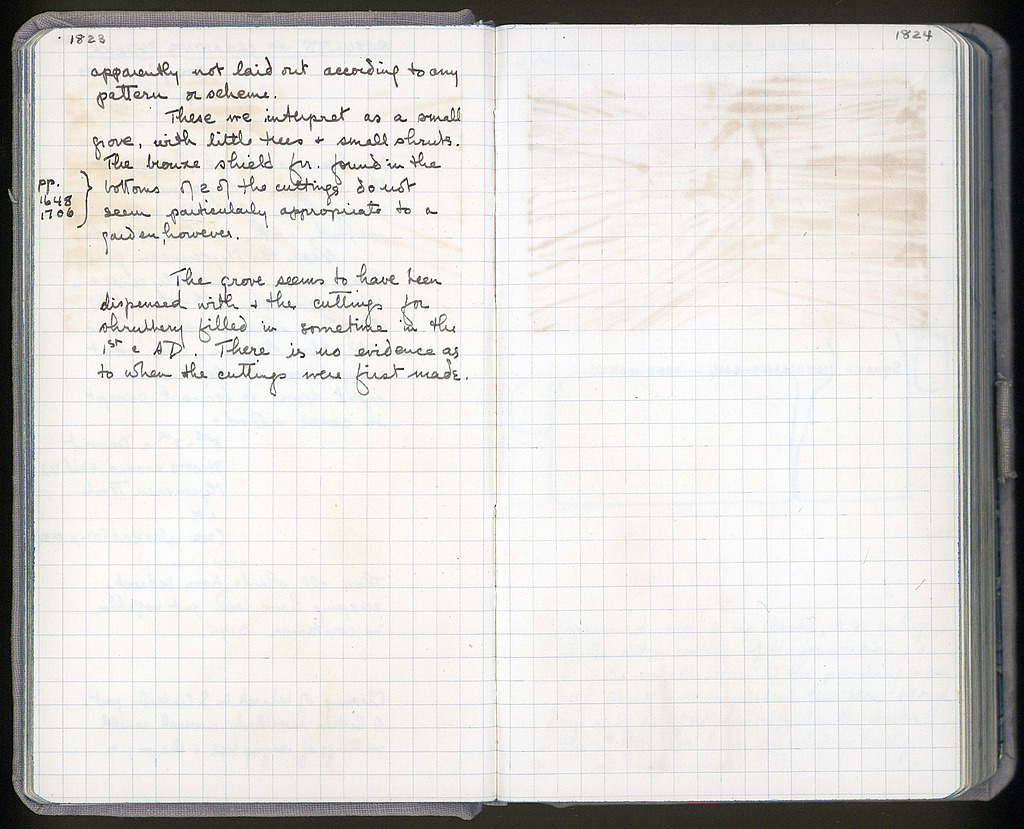 1823
apparently not laid out according to any
pattern or scheme.
These we interpret as a small
grove, with little trees + small shrubs.
The bronze shield fr. found in the
pp.
1648
1706
bottoms of 2 of the cuttings do not
seem particularly appropriate to a
garden, however.
The grove seems to have been
dispensed with + the cuttings for
shrubbery filled in sometime in the
1st c AD. There is no evidence as
to when the cuttings were first made.
1824